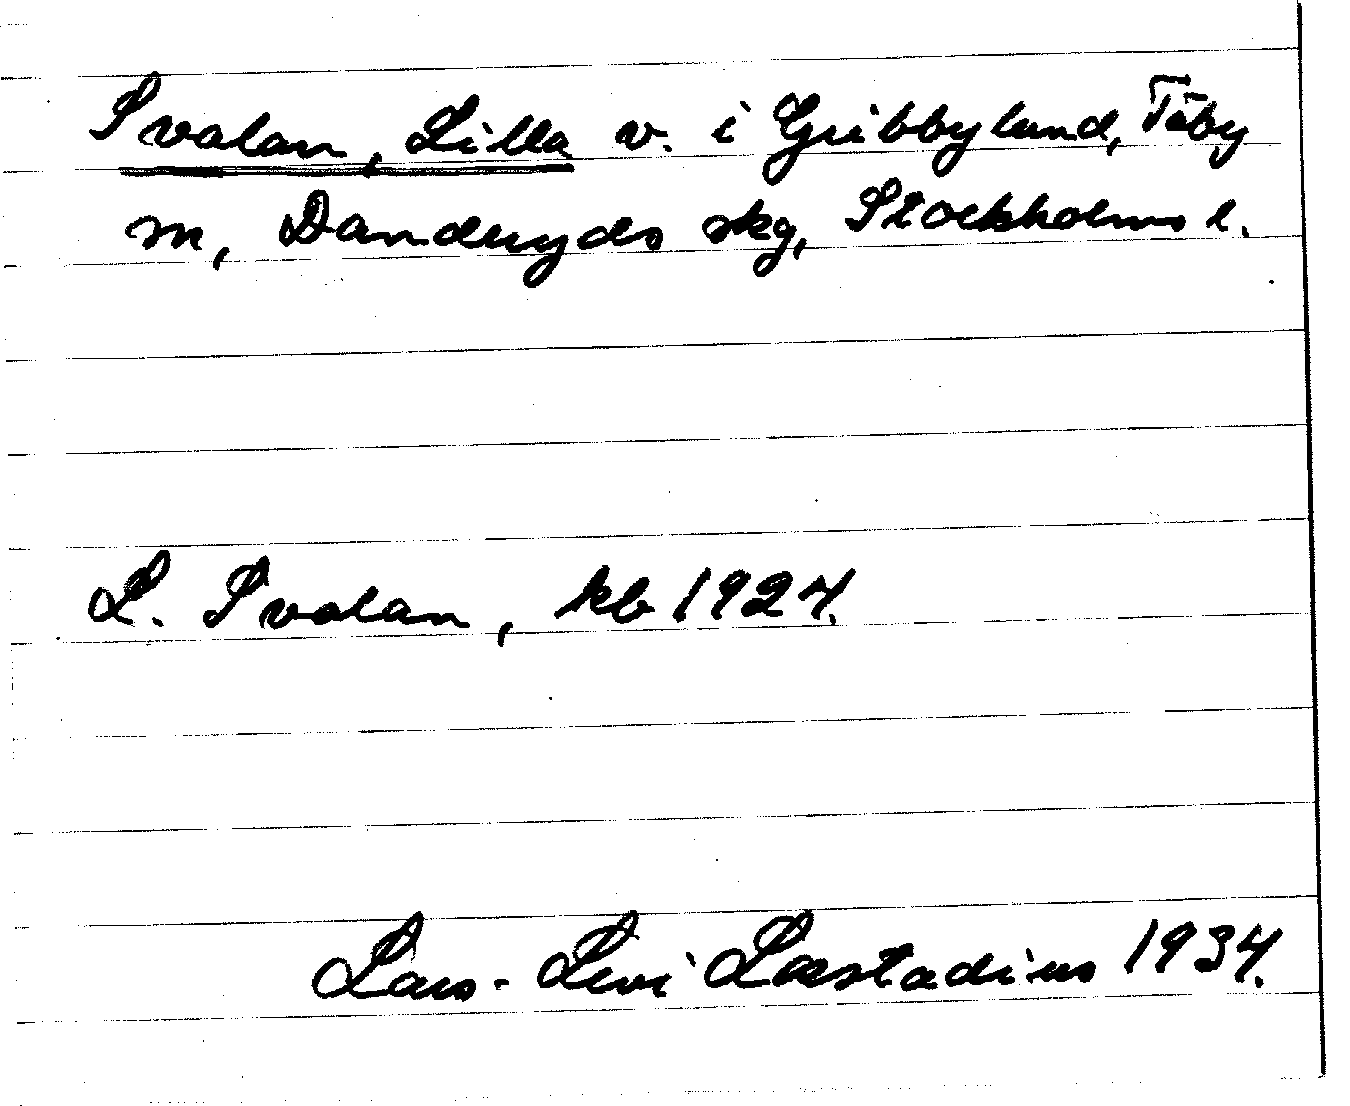 Svalan, Lilla v. i Gribbylund, Täby
sn, Danderyds skg, Stockholms l.
L. Svalan, kb 1924.
Lars-Levi Læstadius 1934.